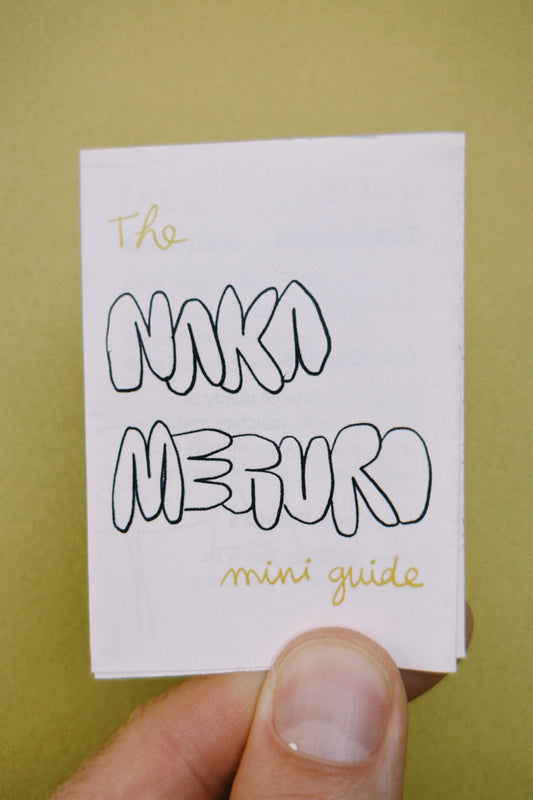 The
NAKA
MEGURO
mini guide